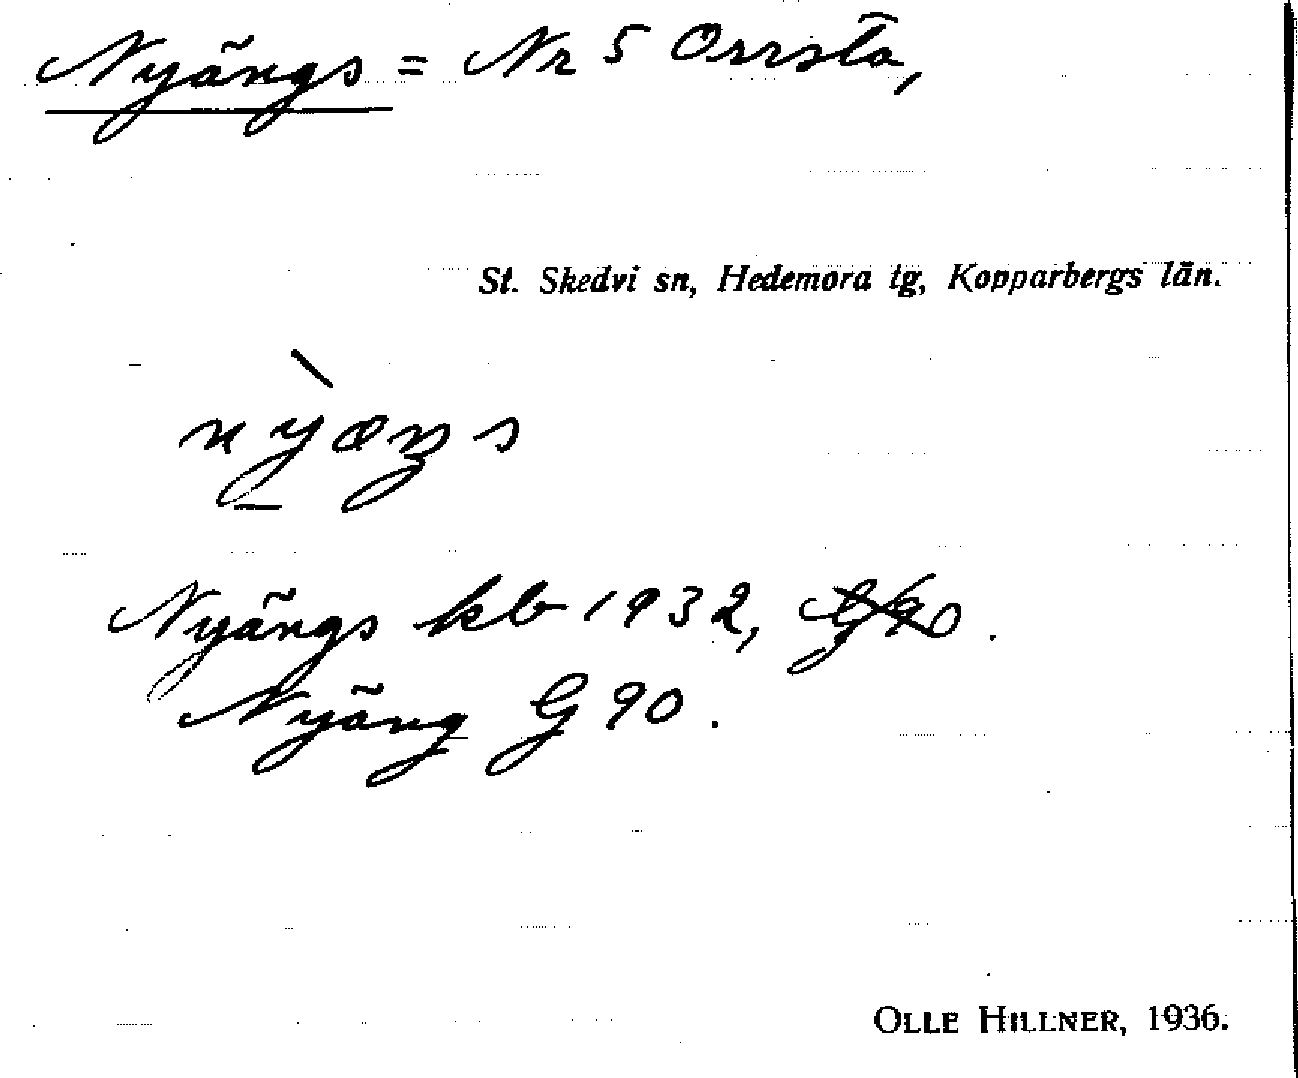 Nyängs = Nr 5 Orrsta,
St. Skedvi sn, Hedemora tg, Kopparbergs län.
Nyängs kb 1932, G 90.
Nyäng G 90.
OLLE HILLNER, 1936.